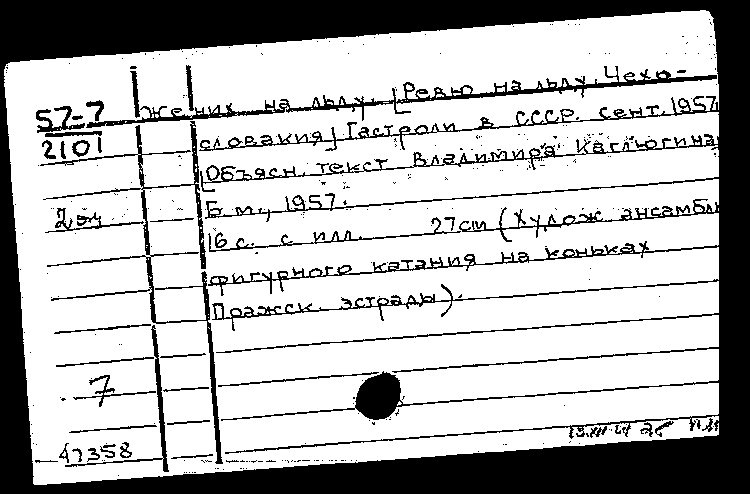 57-7
2101
Жених на льду. [Ревю на льду. Чехо-
словакия] Гастроли в СССР. Сент. 1957
[Объясн. текст Владимира Каглюгина
Б.м., 1957.
2 эц
16 с. с илл. 27см (Худож ансамбль
фигурного катания на коньках
Пражск. эстрады).
7
47358